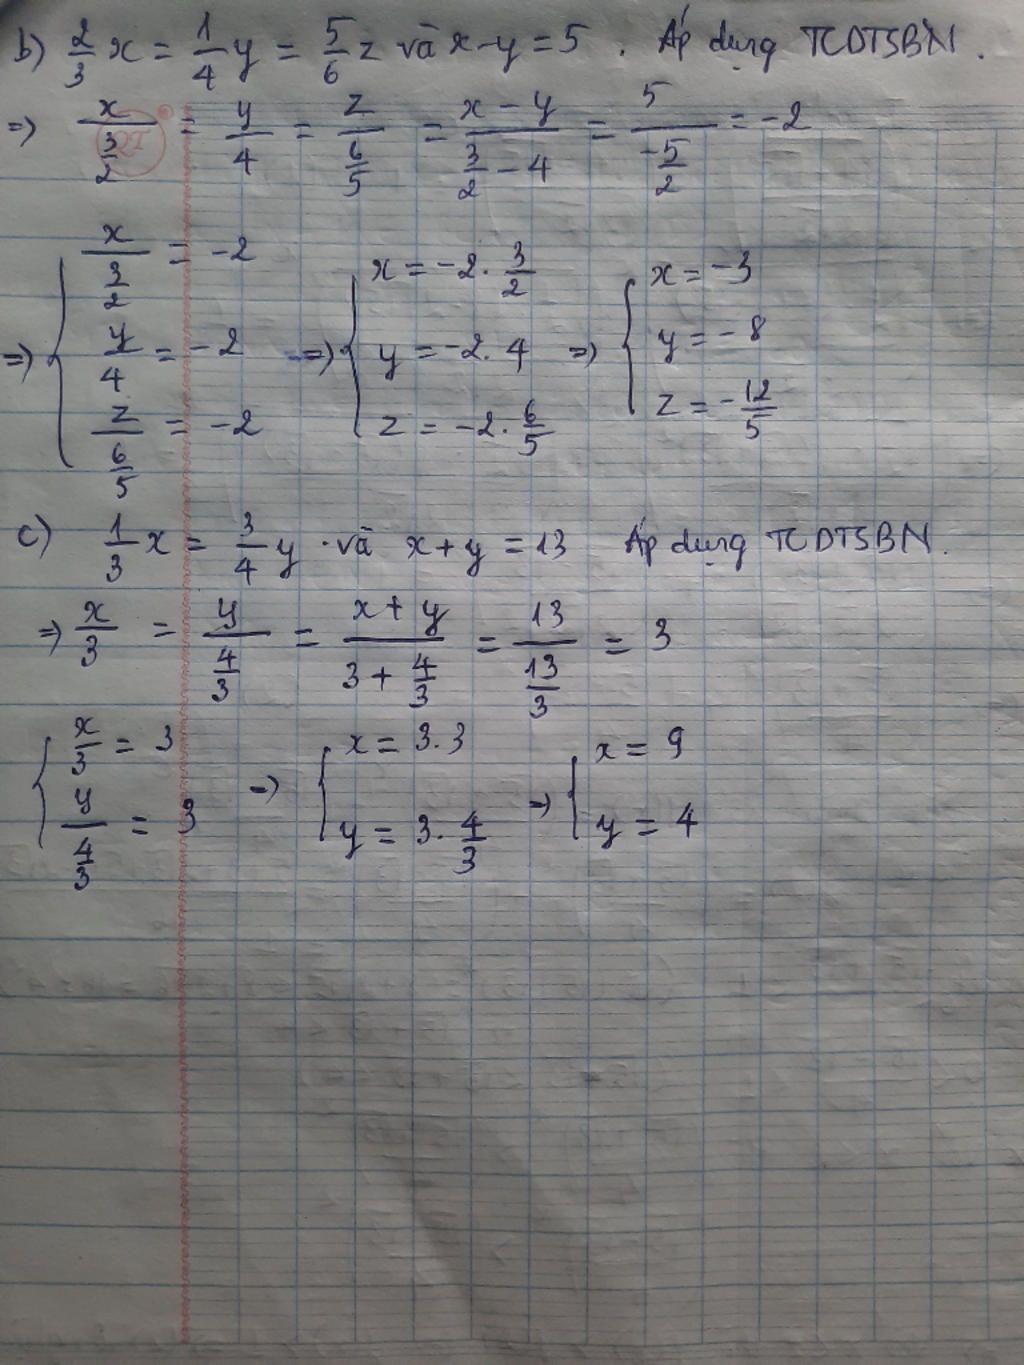 b) 2/3 x = 1/4 y = 5/6 z và x - y = 5 . Áp dụng TCDTSBN .
=> x/(3/2) = y/4 = z/(6/5) = (x - y)/(3/2 - 4) = 5/(-5/2) = -2
=> { x/(3/2) = -2 => { x = -2 . 3/2 => { x = -3
y/4 = -2 y = -2 . 4 y = -8
z/(6/5) = -2 z = -2 . 6/5 z = -12/5
c) 1/3 x = 3/4 y . và x + y = 13 Áp dụng TCDTSBN .
=> x/3 = y/(4/3) = (x + y)/(3 + 4/3) = 13/(13/3) = 3
{ x/3 = 3 => { x = 3 . 3 => { x = 9
y/(4/3) = 3 y = 3 . 4/3 y = 4